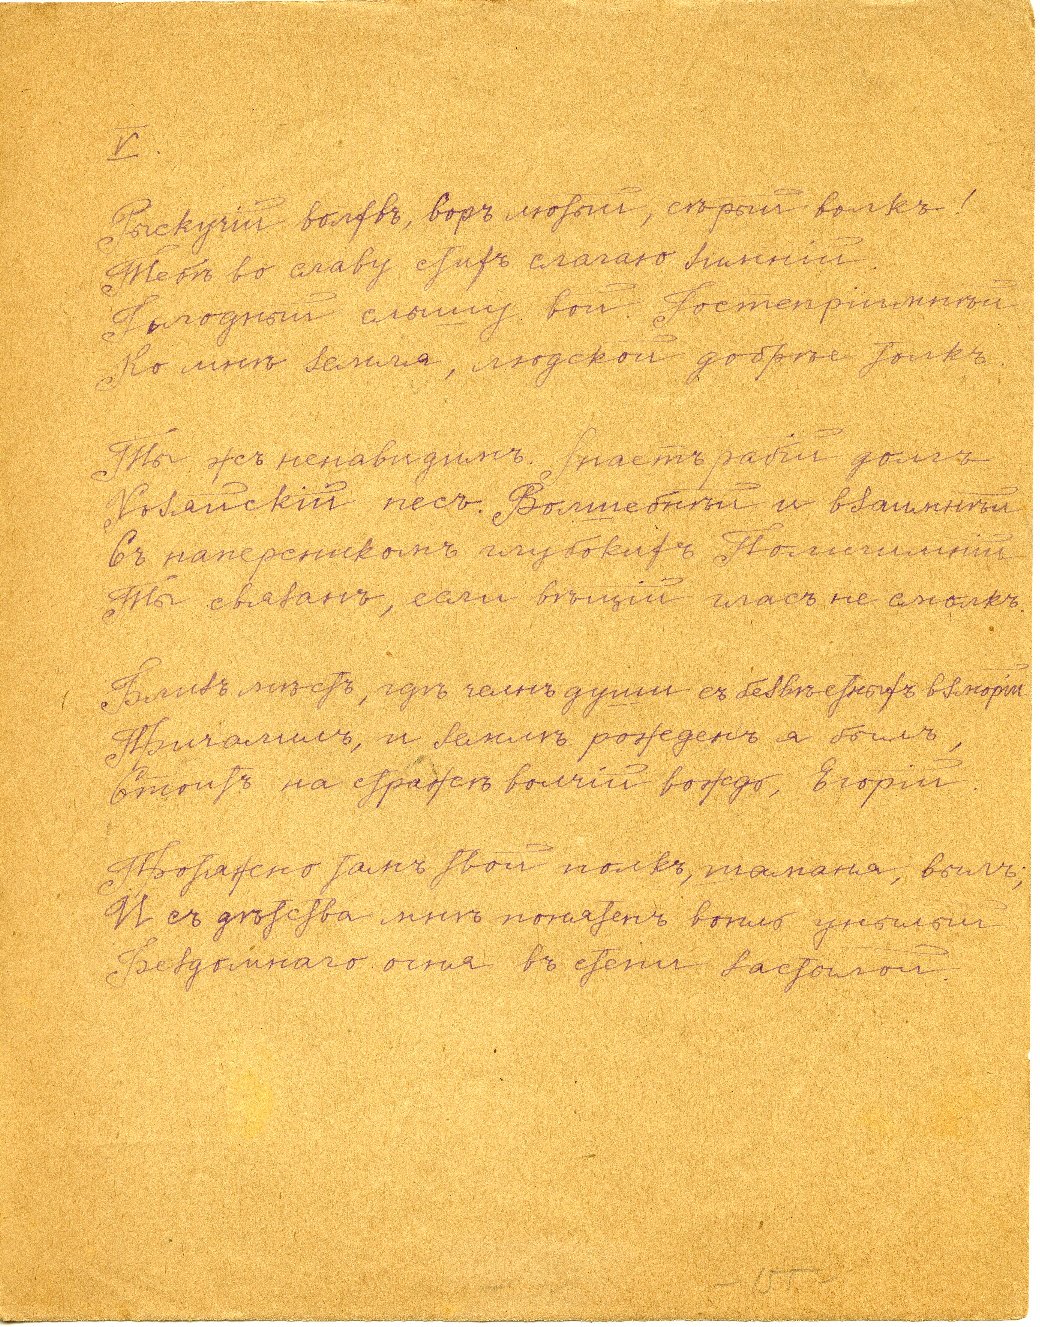 V.
Рыскучій волхвъ, воръ лютый, сѣрый волкъ!
Тебѣ во славу стихъ слагаю зимній.
Голодный слышу вой. Гостепріимнѣй
Ко мнѣ земля, людской добрѣе толкъ.
Ты жъ ненавидимъ. Знаетъ рабій долгъ
Хозяйскій песъ. Волшебнѣй и взаимнѣй
Съ наперсникомъ глубокихъ Полигимній
Ты связанъ, если вѣщій гласъ не смолкъ.
Близъ мѣстъ, гдѣ челнъ души съ безвѣстныхъ взморій
Причалилъ, и землѣ рожденъ я былъ,
Стоитъ на стражѣ волчій вождь, Егорій.
Протяжно тамъ твой полкъ, шаманя, вылъ;
И съ дѣтства мнѣ понятенъ вопль унылый
Бездомнаго огня въ степи застылой.